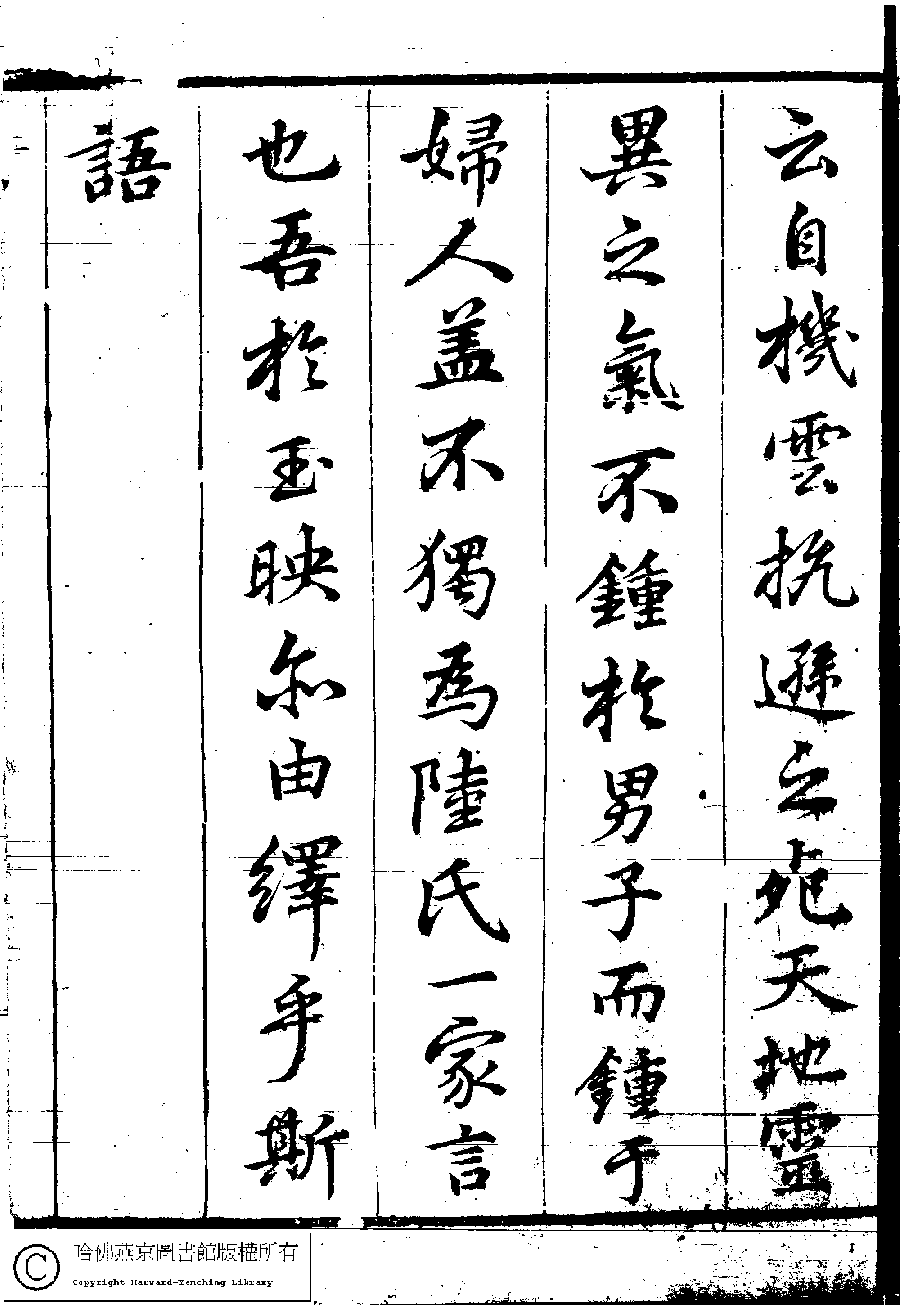 云自機雲抗遜之死天地靈
異之氣不鍾於男子而鍾于
婦人盖不獨為陸氏一家言
也吾於玉映亦由繹乎斯
語
哈佛燕京圖書館版權所有
Copyright Harvard-Yenching Library